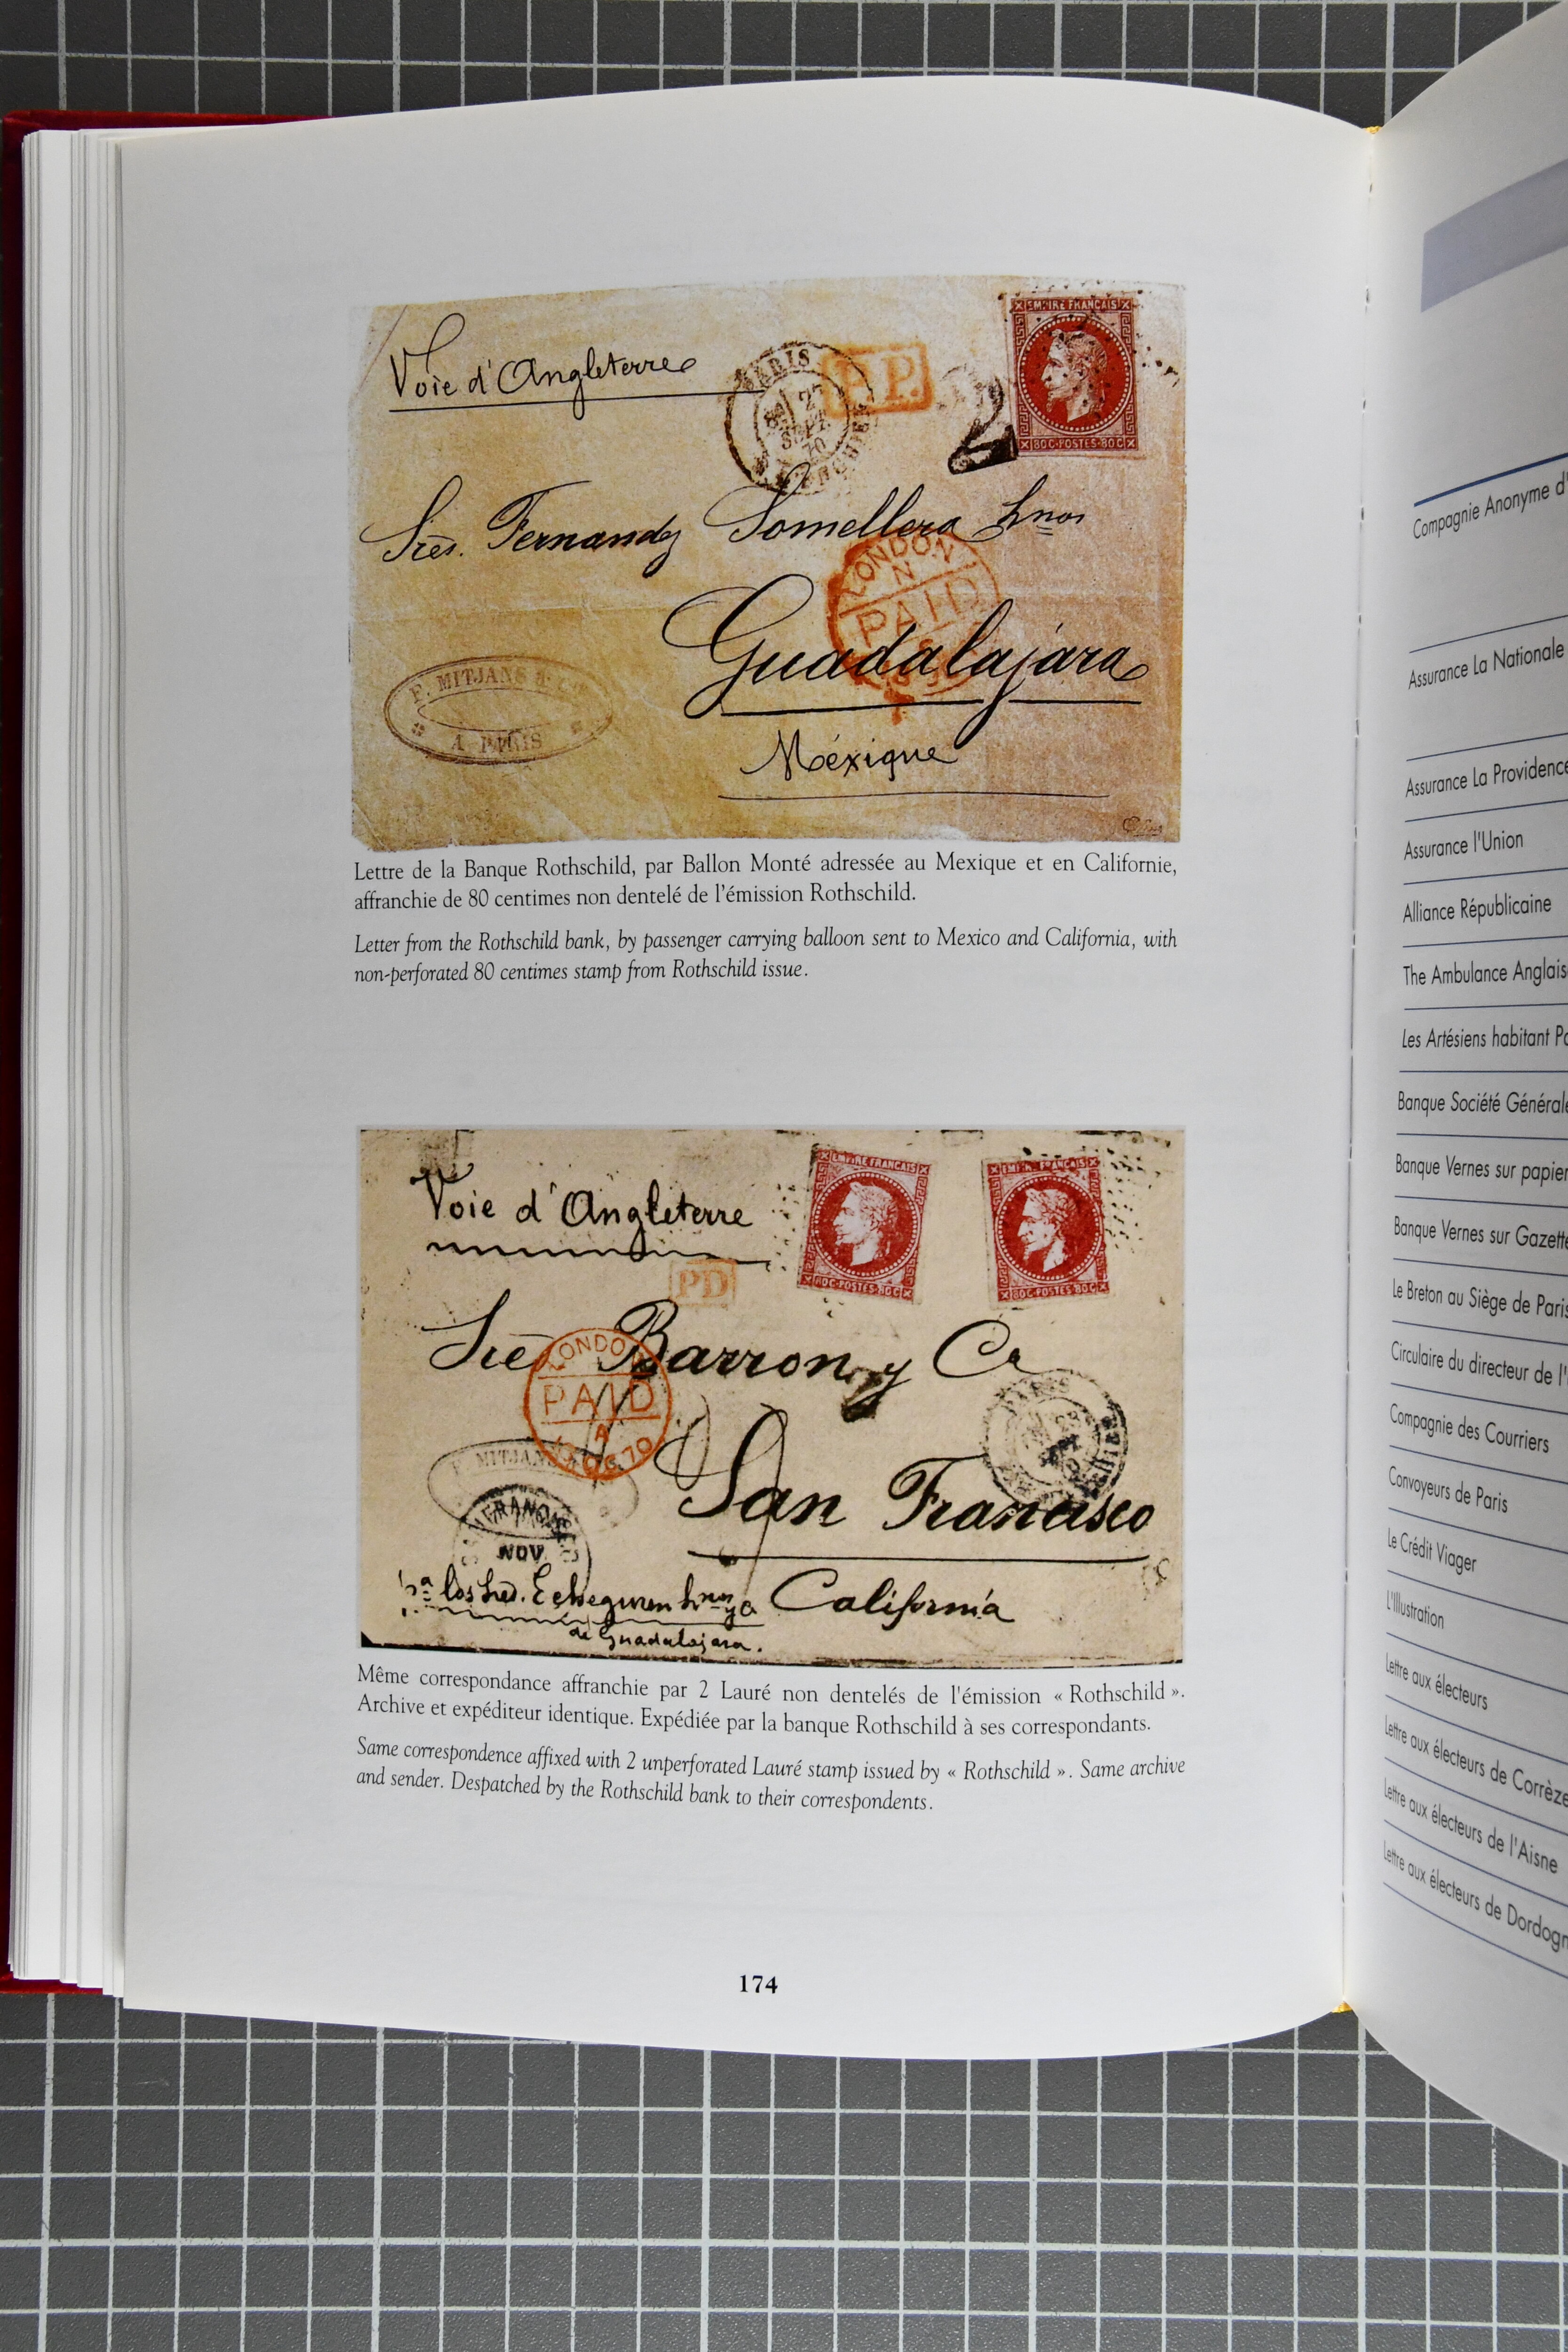 Voie d'Angleterre
PARIS
P.P.
EMPIRE FRANÇAIS
80C·POSTES·80C
2
SEPT.
70
Sres. Fernandez Somellera hnos
LONDON
N
PAID
Guadalajara
F. MITJANS & Cie
A PARIS
Méxique
Lettre de la Banque Rothschild, par Ballon Monté adressée au Mexique et en Californie,
affranchie de 80 centimes non dentelé de l'émission Rothschild.
Letter from the Rothschild bank, by passenger carrying balloon sent to Mexico and California, with
non-perforated 80 centimes stamp from Rothschild issue.
Voie d'Angleterre
EMPIRE FRANÇAIS
80C·POSTES·80C
EMPIRE FRANÇAIS
80C·POSTES·80C
PD
Sres Barron y Ca
LONDON
PAID
A
70
PARIS
F. MITJANS
San Francisco
NOV.
pa los Sres. Echeguren hnos y Ca California
de Guadalajara.
Même correspondance affranchie par 2 Lauré non dentelés de l'émission « Rothschild ».
Archive et expéditeur identique. Expédiée par la banque Rothschild à ses correspondants.
Same correspondence affixed with 2 unperforated Lauré stamp issued by « Rothschild ». Same archive
and sender. Despatched by the Rothschild bank to their correspondents.
174
Compagnie Anonyme d'
Assurance La Nationale
Assurance La Providence
Assurance l'Union
Alliance Républicaine
The Ambulance Anglais
Les Artésiens habitant
Banque Société Générale
Banque Vernes sur papier
Banque Vernes sur Gazette
Le Breton au Siège de Paris
Circulaire du directeur de l'
Compagnie des Courriers
Convoyeurs de Paris
Le Crédit Viager
L'Illustration
Lettre aux électeurs
Lettre aux électeurs de Corrèze
Lettre aux électeurs de l'Aisne
Lettre aux électeurs de Dordogn